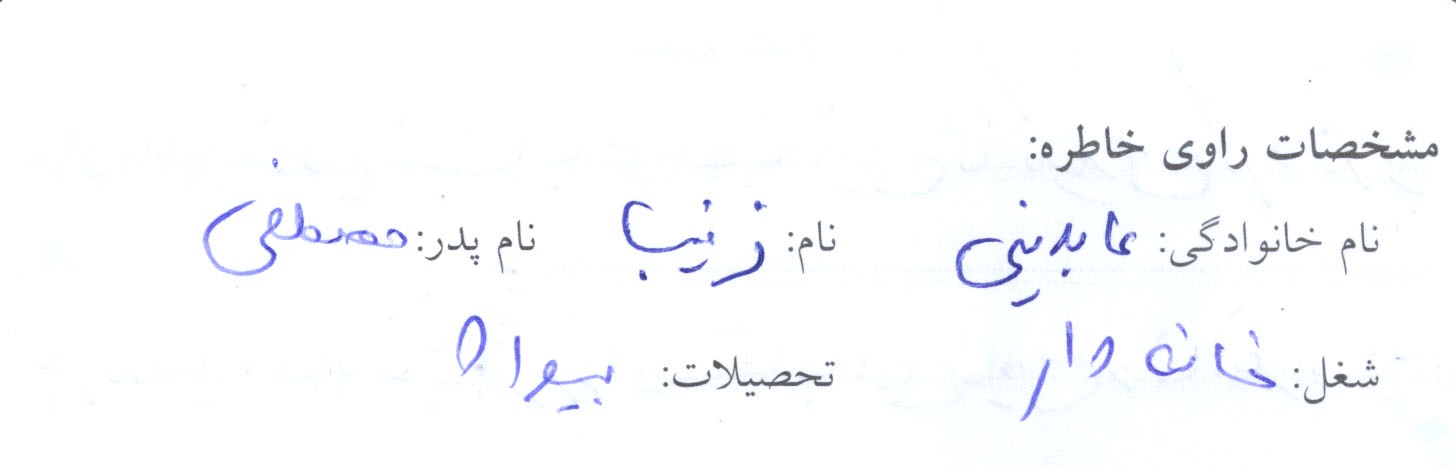 مشخصات راوی خاطره:
نام خانوادگی: عابدینی نام: زینب نام پدر: مصطفی
شغل: خانه دار تحصیلات: بیسواد